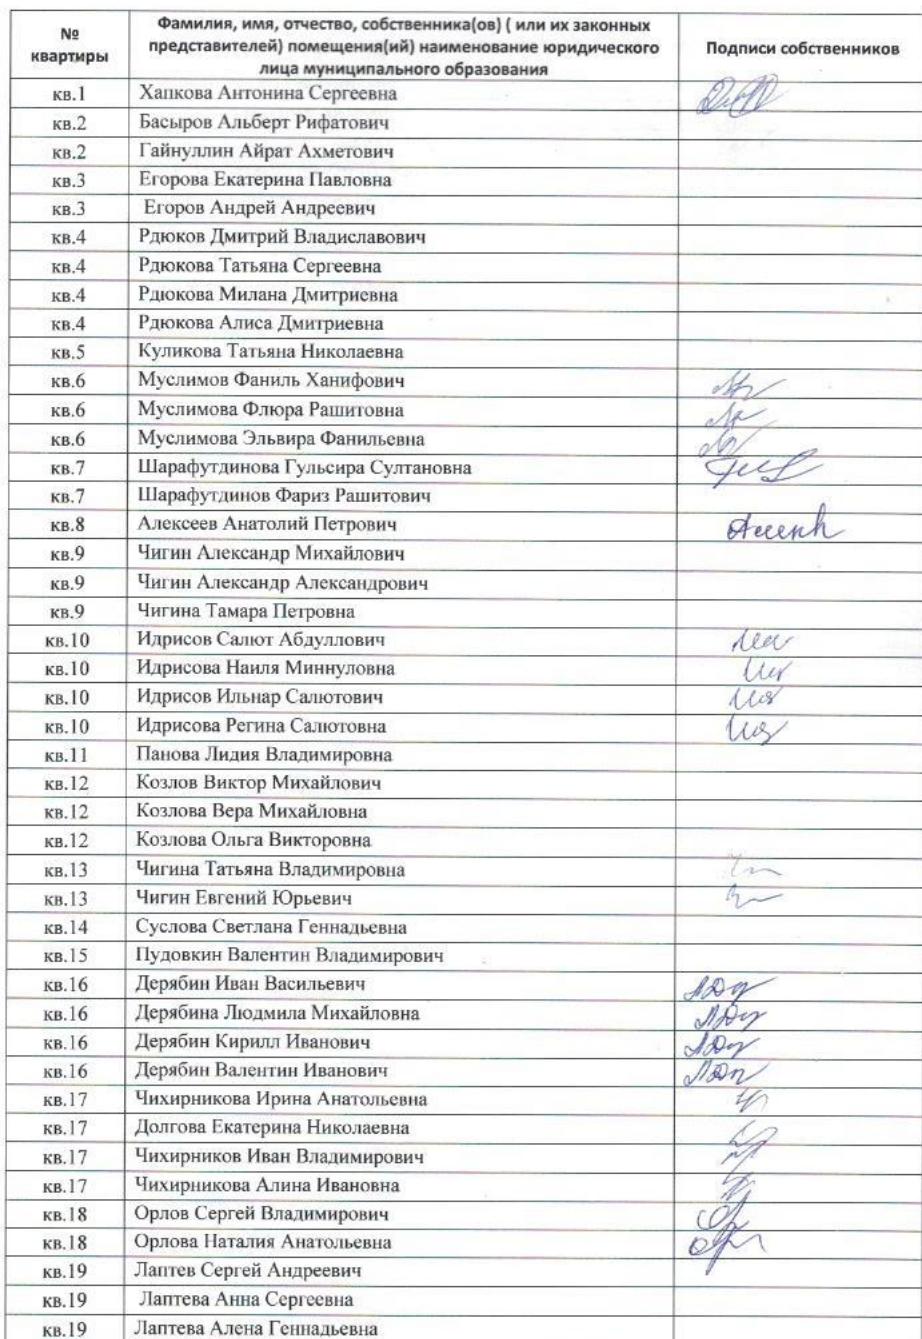 № квартиры
Фамилия, имя, отчество, собственника(ов) ( или их законных представителей) помещения(ий) наименование юридического лица муниципального образования
Подписи собственников
кв.1 Хапкова Антонина Сергеевна
кв.2 Басыров Альберт Рифатович
кв.2 Гайнуллин Айрат Ахметович
кв.3 Егорова Екатерина Павловна
кв.3 Егоров Андрей Андреевич
кв.4 Рдюков Дмитрий Владиславович
кв.4 Рдюкова Татьяна Сергеевна
кв.4 Рдюкова Милана Дмитриевна
кв.4 Рдюкова Алиса Дмитриевна
кв.5 Куликова Татьяна Николаевна
кв.6 Муслимов Фаниль Ханифович
кв.6 Муслимова Флюра Рашитовна
кв.6 Муслимова Эльвира Фанильевна
кв.7 Шарафутдинова Гульсира Султановна
кв.7 Шарафутдинов Фариз Рашитович
кв.8 Алексеев Анатолий Петрович
кв.9 Чигин Александр Михайлович
кв.9 Чигин Александр Александрович
кв.9 Чигина Тамара Петровна
кв.10 Идрисов Салют Абдуллович
кв.10 Идрисова Наиля Миннуловна
кв.10 Идрисов Ильнар Салютович
кв.10 Идрисова Регина Салютовна
кв.11 Панова Лидия Владимировна
кв.12 Козлов Виктор Михайлович
кв.12 Козлова Вера Михайловна
кв.12 Козлова Ольга Викторовна
кв.13 Чигина Татьяна Владимировна
кв.13 Чигин Евгений Юрьевич
кв.14 Суслова Светлана Геннадьевна
кв.15 Пудовкин Валентин Владимирович
кв.16 Дерябин Иван Васильевич
кв.16 Дерябина Людмила Михайловна
кв.16 Дерябин Кирилл Иванович
кв.16 Дерябин Валентин Иванович
кв.17 Чихирникова Ирина Анатольевна
кв.17 Долгова Екатерина Николаевна
кв.17 Чихирников Иван Владимирович
кв.17 Чихирникова Алина Ивановна
кв.18 Орлов Сергей Владимирович
кв.18 Орлова Наталия Анатольевна
кв.19 Лаптев Сергей Андреевич
кв.19 Лаптева Анна Сергеевна
кв.19 Лаптева Алена Геннадьевна